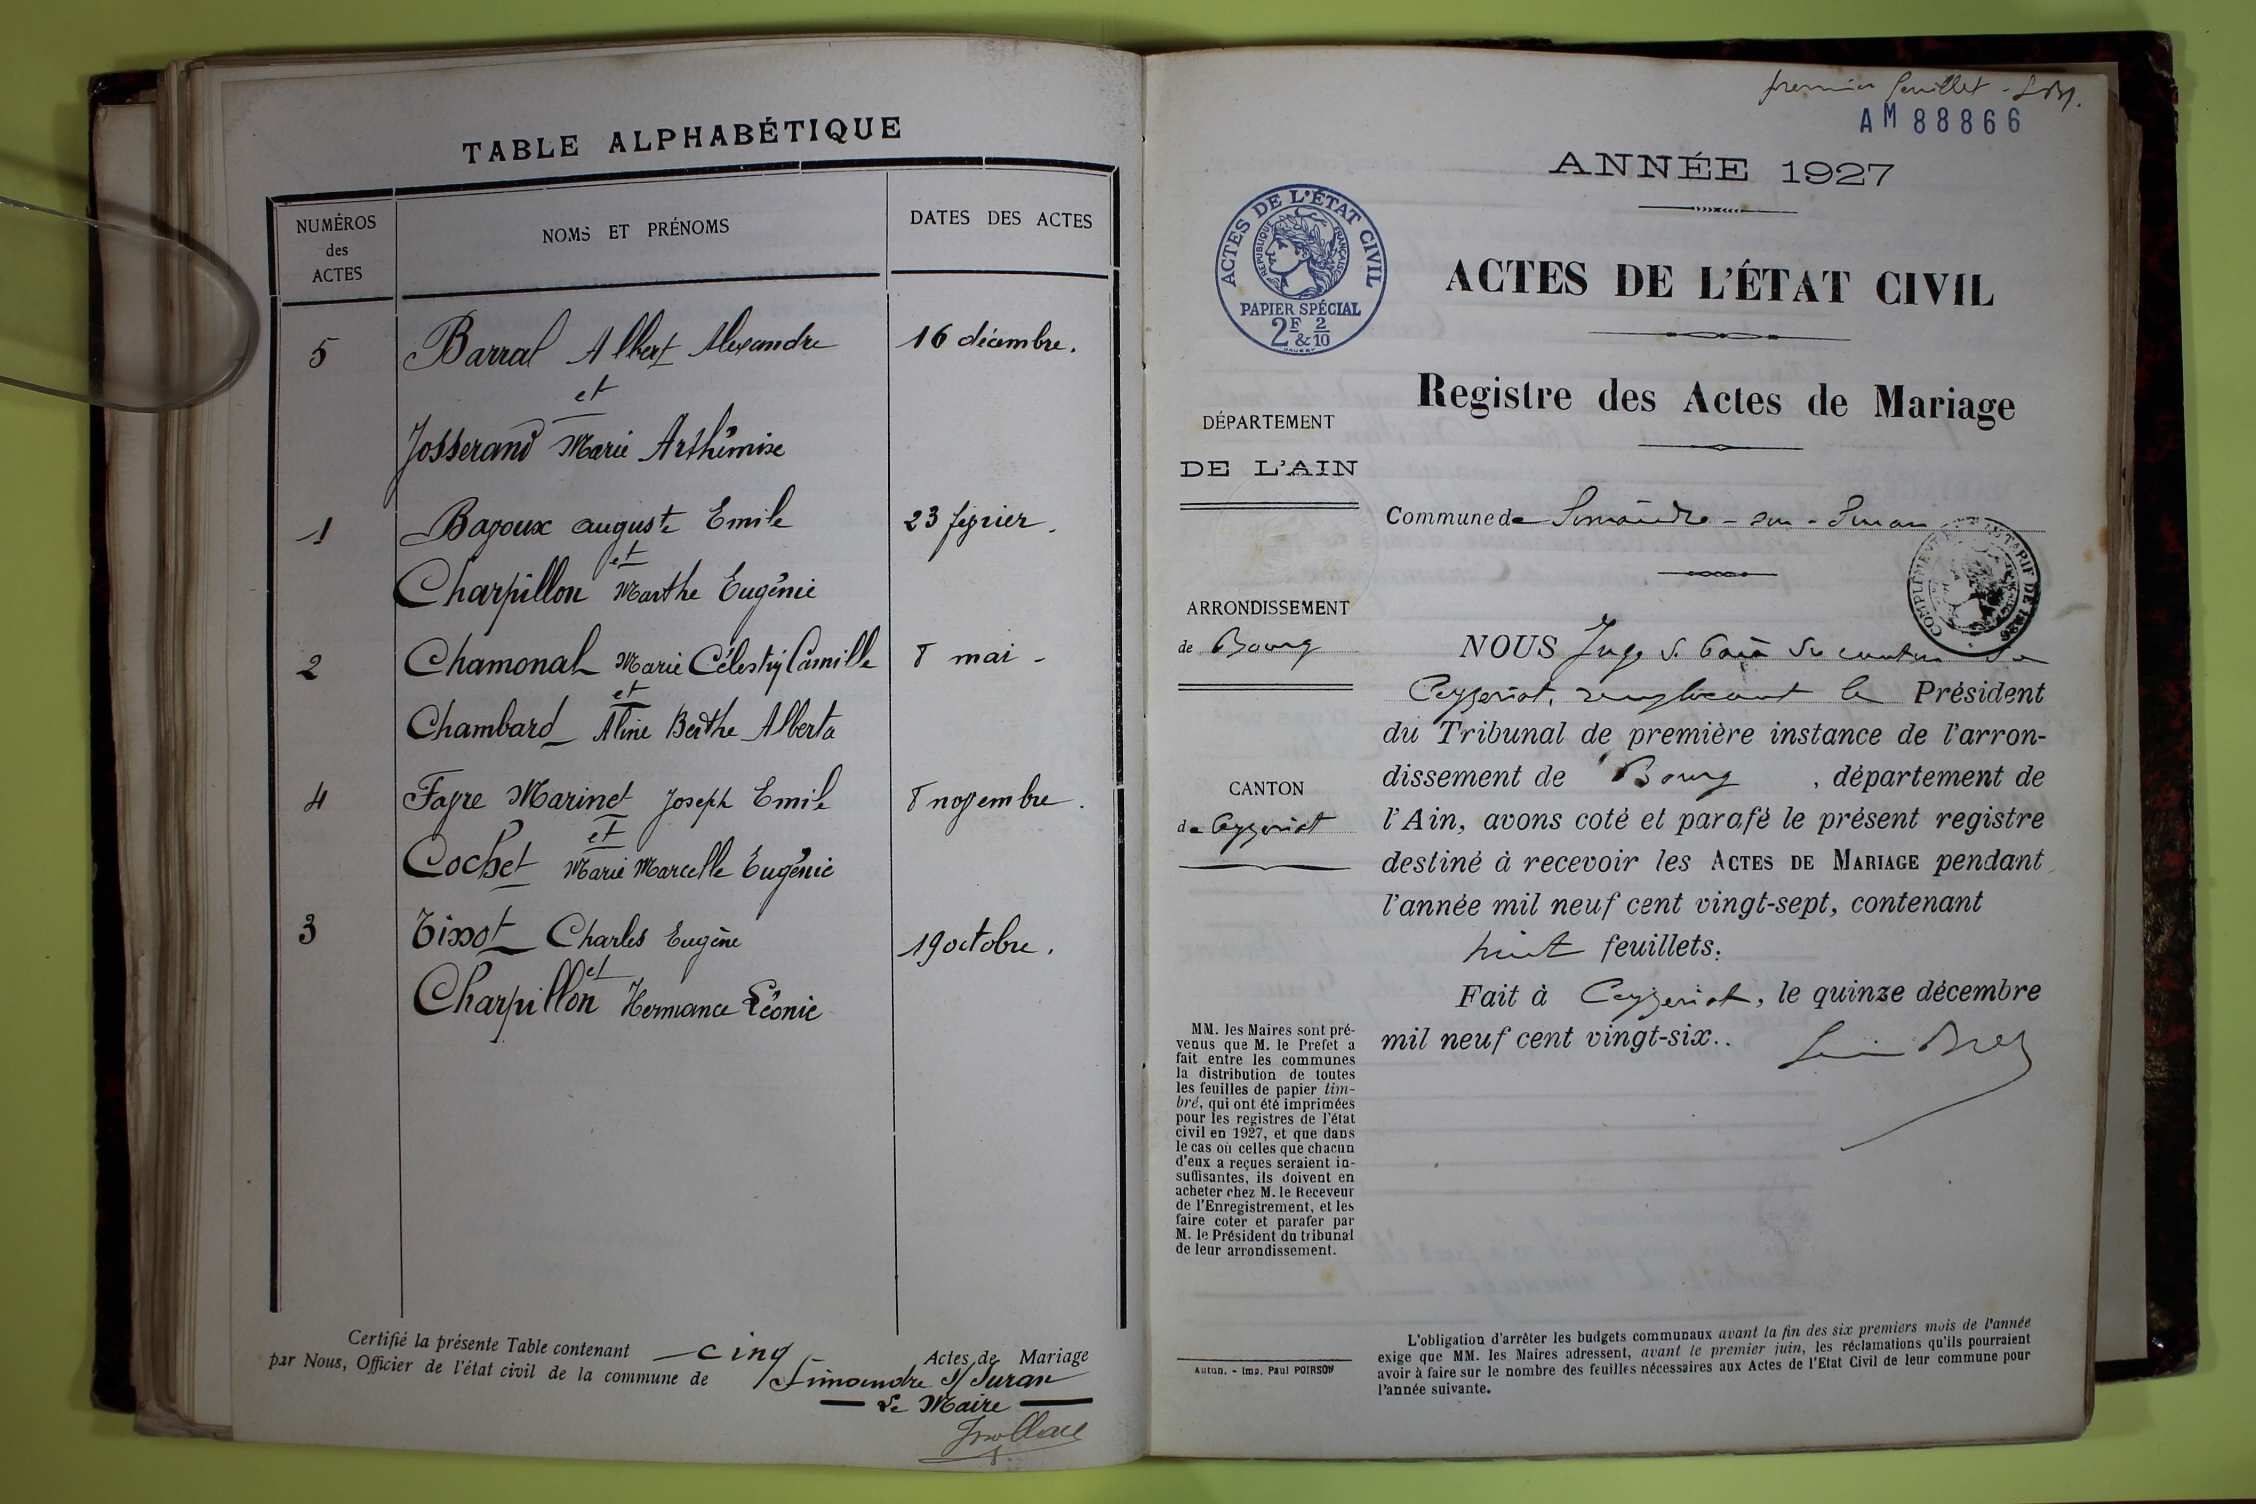 TABLE ALPHABÉTIQUE
NUMÉROS
des
ACTES
NOMS ET PRÉNOMS
DATES DES ACTES
5 Barral Albert Alexandre 16 décembre.
et
Josserand Marie Arthémise
1 Bazoux auguste Emile 23 février.
et
Charpillon Marthe Eugénie
2 Chamonal Marie Camille 8 mai -
et
Chambard Aline Berthe Alberta
4 Favre Marinet Joseph Emile 8 novembre.
et
Cochet Marie Marcelle Eugénie
3 Tissot Charles Eugène 19 octobre.
et
Charpillon Hermance Léonie
Certifié la présente Table contenant cinq Actes de Mariage
par Nous, Officier de l'état civil de la commune de Simandre s/ Suran
Le Maire
premier feuillet -
AM 88866
ANNÉE 1927
ACTES DE L'ÉTAT CIVIL
RÉPUBLIQUE FRANÇAISE
PAPIER SPÉCIAL
2F & 2/10
ACTES DE L'ÉTAT CIVIL
Registre des Actes de Mariage
DÉPARTEMENT
DE L'AIN
Commune de Simandre - sur - Suran
ARRONDISSEMENT
de Bourg
CANTON
de Ceyzeriat
NOUS Juge de Paix du canton de
Ceyzeriat, remplacant le Président
du Tribunal de première instance de l'arron-
dissement de Bourg, département de
l'Ain, avons coté et parafé le présent registre
destiné à recevoir les ACTES DE MARIAGE pendant
l'année mil neuf cent vingt-sept, contenant
huit feuillets.
Fait à Ceyzeriat, le quinze décembre
mil neuf cent vingt-six..
MM. les Maires sont pré-
venus que M. le Prefet a
fait entre les communes
la distribution de toutes
les feuilles de papier tim-
bré, qui ont été imprimées
pour les registres de l'état
civil en 1927, et que dans
le cas où celles que chacun
d'eux a reçues seraient in-
suffisantes, ils doivent en
acheter chez M. le Receveur
de l'Enregistrement, et les
faire coter et parafer par
M. le Président du tribunal
de leur arrondissement.
Autun. - Imp. Paul POIRSON
L'obligation d'arrêter les budgets communaux avant la fin des six premiers mois de l'année
exige que MM. les Maires adressent, avant le premier juin, les réclamations qu'ils pourraient
avoir à faire sur le nombre des feuilles nécessaires aux Actes de l'Etat Civil de leur commune pour
l'année suivante.